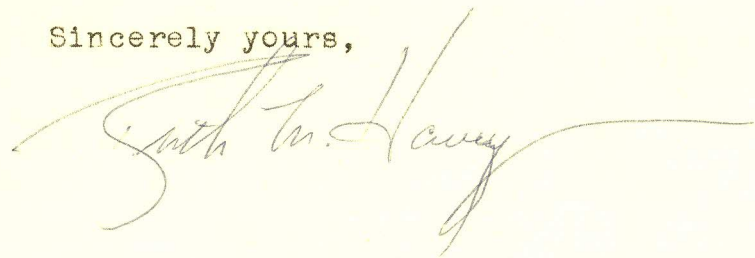 Sincerely yours,
Ruth M. Harvey